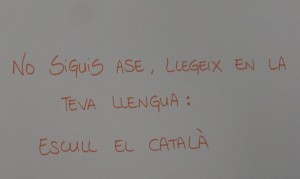 NO SIGUIS ASE, LLEGEIX EN LA
TEVA LLENGUA:
ESCULL EL CATALÀ